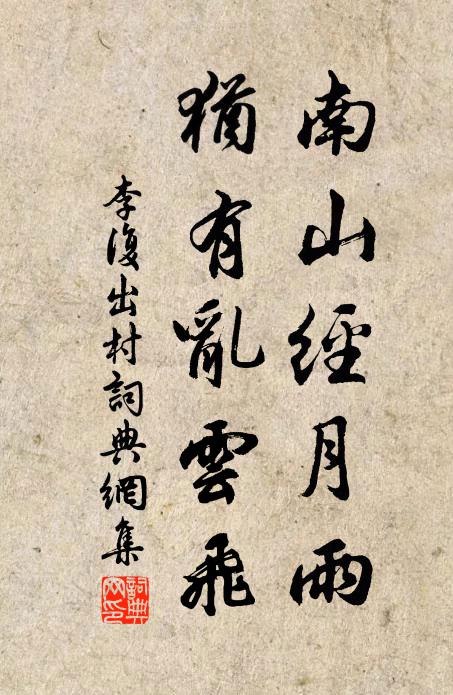 南山經月雨
猶有亂雲飛
李復出村詞典網集
詞典
网印